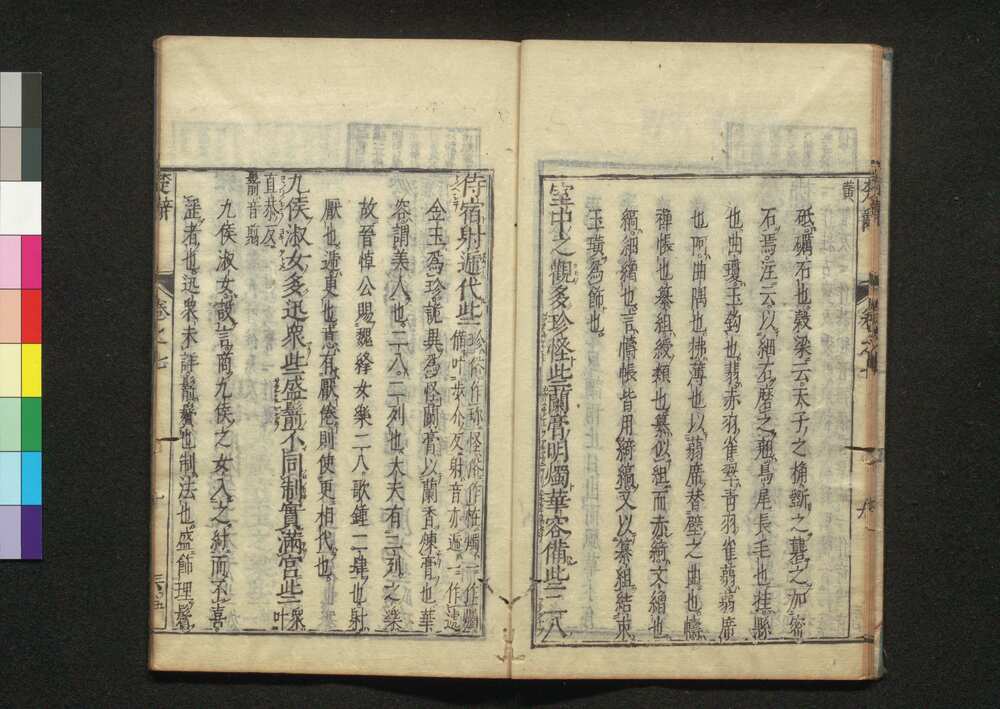 黄
砥礪石也穀梁云天子之桷斲之礱之加密
石焉注云以細石磨之翹鳥尾長毛也挂縣
也曲瓊玉鉤也翡赤羽雀翠青羽雀蒻蒻席
也阿曲隅也拂薄也以蒻席替壁之曲也幬
禪帳也纂組綬類也纂似組而赤綺文繒也
縞細繒也言幬帳皆用綺縞又以纂組結束
玉璜為飾也
室中之觀多珍怪些蘭膏明燭華容備些二八
侍宿射遞代些
珍俗作珎怪俗作恠燭一作爥
備叶 射音亦遞一作遰
金玉為珍詭異為怪蘭膏以蘭香煉膏也華
容謂美人也二八二列也大夫有二列之樂
故晉悼公賜魏絳女樂二八歌鍾二肆也射
厭也遞更也意有厭倦則使更相代也
九侯淑女多迅衆些盛鬋不同制實滿宮些
衆叶
直恭反
鬋音翦
九侯淑女設言商九侯之女入之紂而不喜
淫者也迅衆未詳鬋鬢也制法也盛飾理鬢
楚辭
卷之七
三五